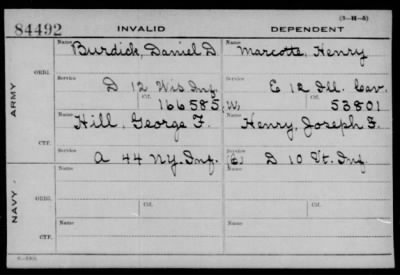 (3-H-5)
84492 INVALID DEPENDENT
Name Name
Burdick, Daniel D. Marcotte, Henry
ORIG.
Service Service
D 12 Wis Inf. E 12 Ill. Cav.
Ctf. Ctf.
166585 (W) 53801
ARMY
Name Name
Hill, George F. Henry, Joseph F.
CTF.
Service Service
A 44 N.Y. Inf. (C) D 10 Vt. Inf.
NAVY
Name Name
ORIG.
Service Ctf. Service Ctf.
Name Name
CTF.
Service Service